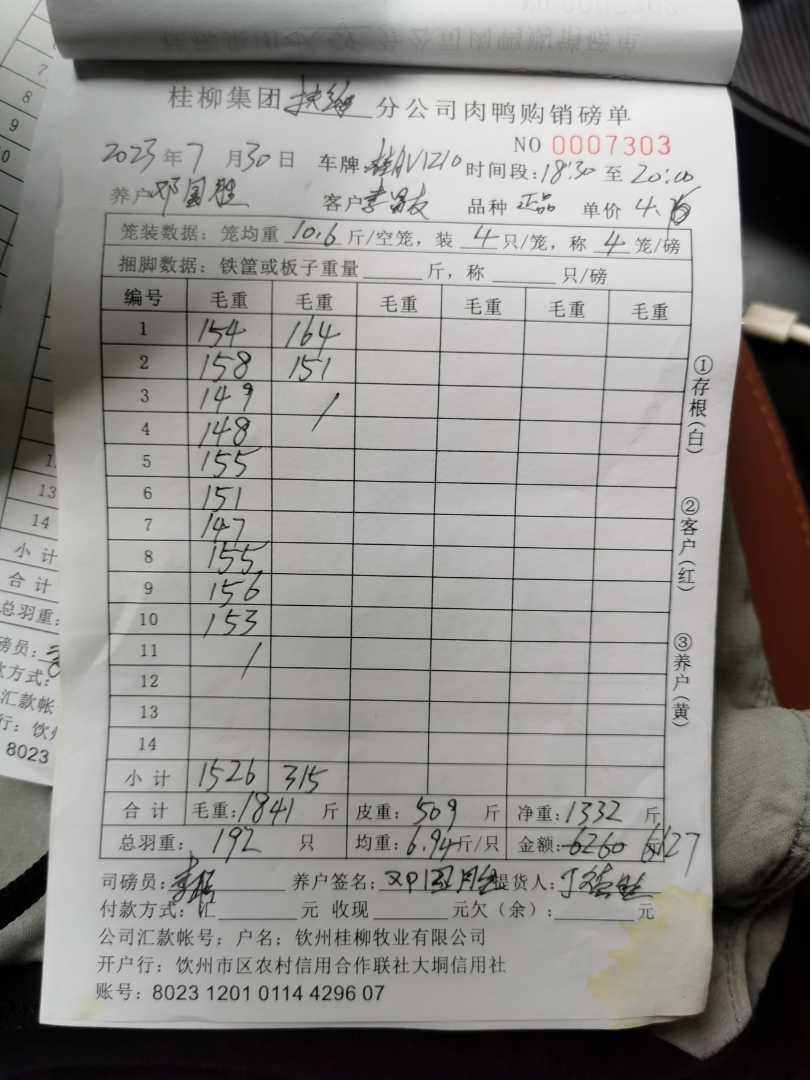 桂柳集团扶绥分公司肉鸭购销磅单
NO 0007303
2023年7月30日 车牌:桂AV1210 时间段:18:30至20:00
养户 邓国胜 客户 李 友 品种 正品 单价 4.6
笼装数据：笼均重 10.6 斤/空笼，装 4 只/笼，称 4 笼/磅
捆脚数据：铁筐或板子重量 斤，称 只/磅
编号 毛重 毛重 毛重 毛重 毛重 毛重
1 154 164
2 158 151
3 149 /
4 148
5 155
6 151
7 147
8 155
9 156
10 153
11 /
12
13
14
小计 1526 315
合计 毛重:1841 斤 皮重:509 斤 净重:1332 斤
总羽重: 192 只 均重:6.94斤/只 金额:6260 元 6127
司磅员: 养户签名: 提货人:
付款方式：汇 元 收现 元欠（余）: 元
公司汇款帐号：户名：钦州桂柳牧业有限公司
开户行：钦州市区农村信用合作联社大垌信用社
账号：8023 1201 0114 4296 07
①存根(白)
②客户(红)
③养户(黄)
7
8
9
10
13
14
小计
合计
总羽重:
磅员:
方式:
汇款帐
行：钦州
8023